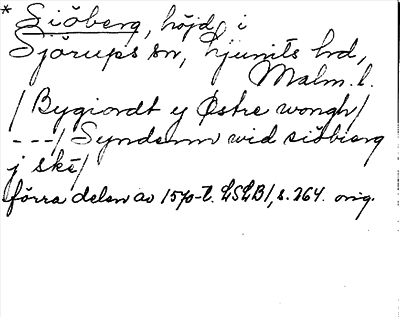 * Siöberg, höjd, i
Sjörups sn, Ljunits hd,
Malm. l.
/ Bygiordt y Østre wongh/
---/ Synden wid siöbierg
j ske/
förra delen av 1570-t. LSLB1, s. 264. orig.